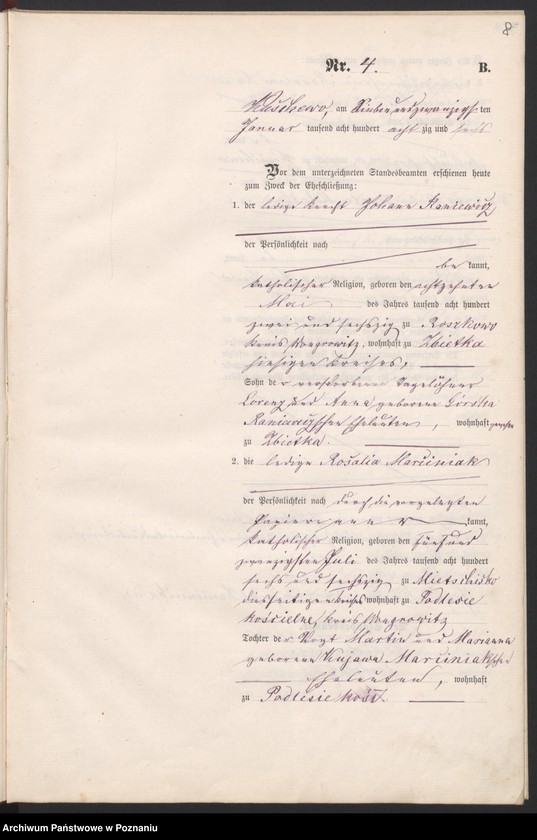 8
Nr. 4. B.
am Siebenundzwanzigsten
Januar tausend acht hundert acht zig und sechs
Vor dem unterzeichneten Standesbeamten erschienen heute
zum Zweck der Eheschließung:
1. der ledige Knecht Johann Raniewicz
der Persönlichkeit nach
be kannt,
katholischer Religion, geboren den achtzehnten
Mai des Jahres tausend acht hundert
zwei und sechszig zu Roszkowo
Kreis Wongrowitz, wohnhaft zu Zbietka
hiesigen Kreises,
Sohn der verstorbenen Tagelöhner
Lorenz und Anna geborene Górska
Raniewicz'schen Eheleuten, wohnhaft gewesen
zu Zbietka.
2. die ledige Rosalia Marciniak
der Persönlichkeit nach durch die vorgelegten
Papiere aner kannt,
katholischer Religion, geboren den fünfund
zwanzigsten Juli des Jahres tausend acht hundert
sechs und sechszig zu Mietschisko
diesseitigen Kreises wohnhaft zu Podlesie
kościelne, Kreis Wongrowitz
Tochter der Vogt Martin und Marianna
geborene Kujawa Marciniak'schen
Eheleuten, wohnhaft
zu Podlesie kość.
Archiwum Państwowe w Poznaniu